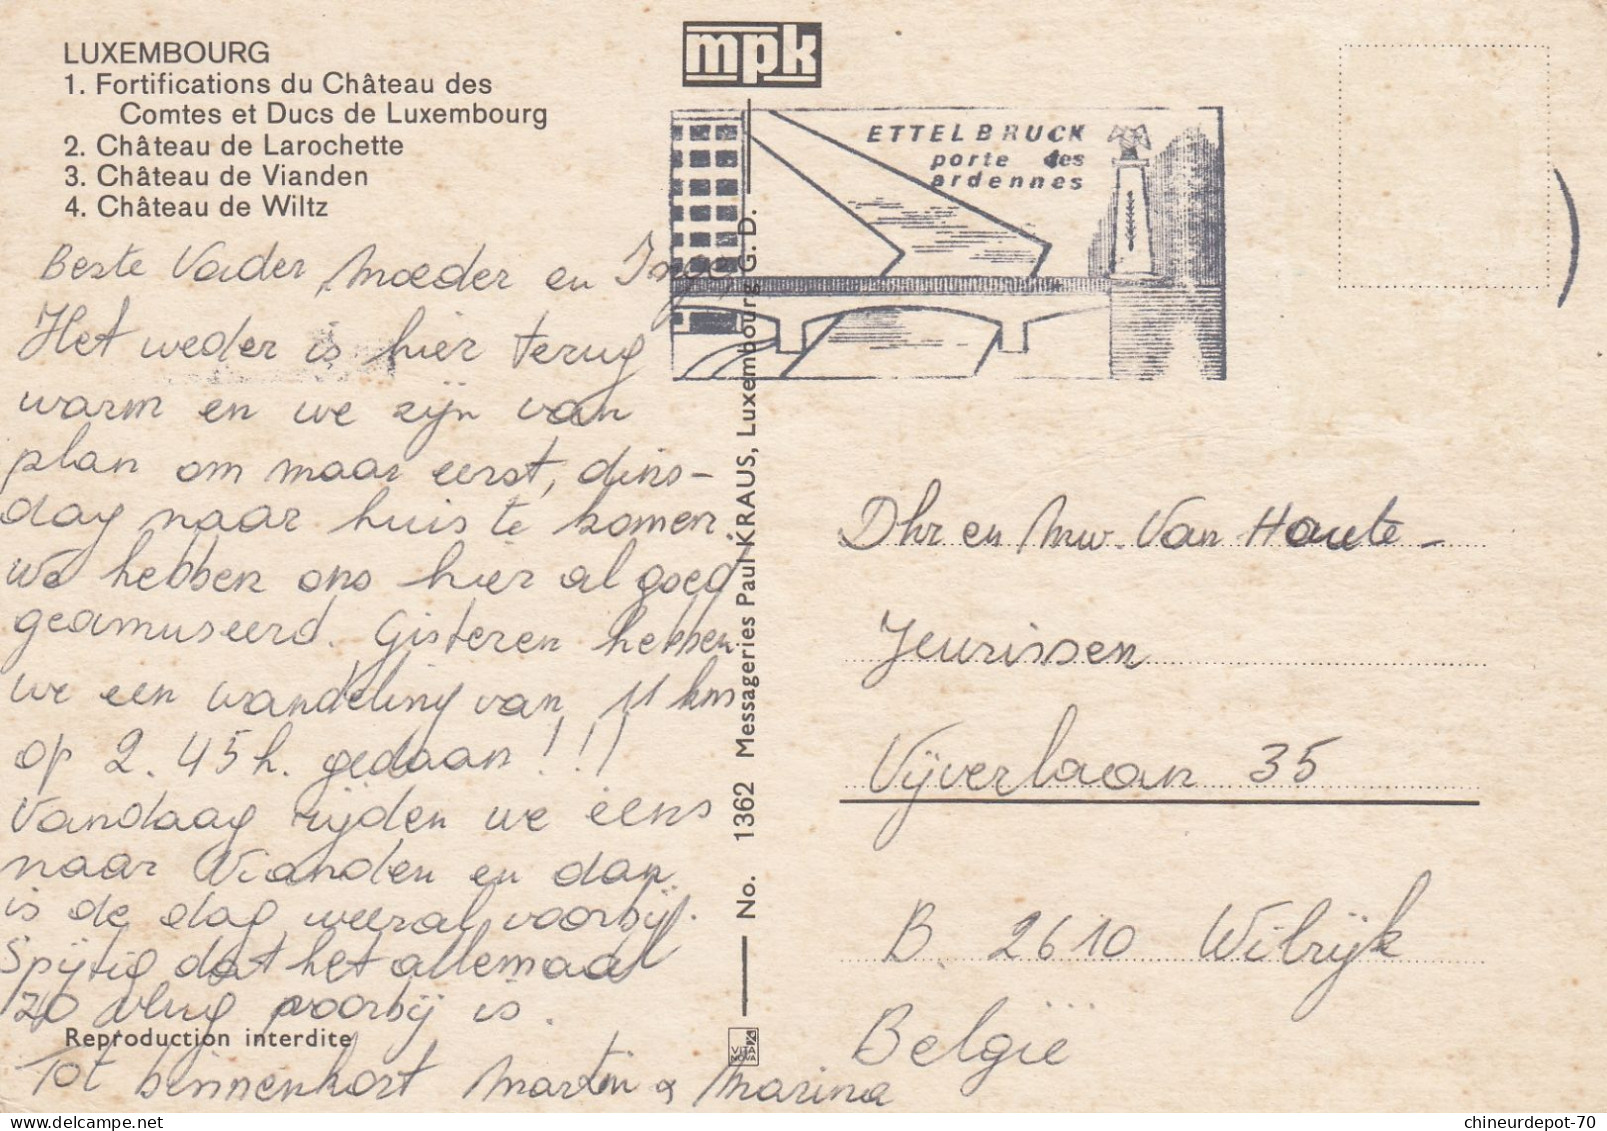 LUXEMBOURG
1. Fortifications du Château des
Comtes et Ducs de Luxembourg
2. Château de Larochette
3. Château de Vianden
4. Château de Wiltz
mpk
ETTELBRUCK
porte des
ardennes
Beste Vader, Moeder en
Het weder is hier terug
warm en we zijn van
plan om maar eerst, dins-
dag naar huis te komen.
We hebben ons hier al goed
geamuseerd. Gisteren hebben
we een wandeling van 11 km
op 2.45h. gedaan!!!
Vandaag rijden we eens
naar Vianden en dan
is de dag weeral voorbij.
Spijtig dat het allemaal
zo vlug voorbij is.
Reproduction interdite
Tot binnenkort Martin & Marina
No. 1362 Messageries Paul KRAUS, Luxembourg G. D.
VITA
NOVA
Dhr en Mw. Van Houte-
Jeurissen
Vijverlaan 35
B. 2610 Wilrijk
België
chineurdepot-70